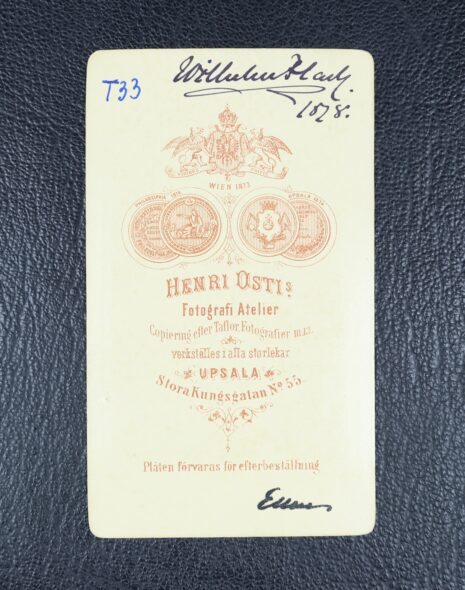 T33
Wilhelm Flach.
1878.
WIEN 1873
PHILADELPHIA 1876
UPSALA 1874
HENRI OSTIs
Fotografi Atelier
Copiering efter Taflor, Fotografier m.m.
verkställes i alla storlekar
UPSALA
Stora Kungsgatan No 55.
Plåten förvaras för efterbeställning